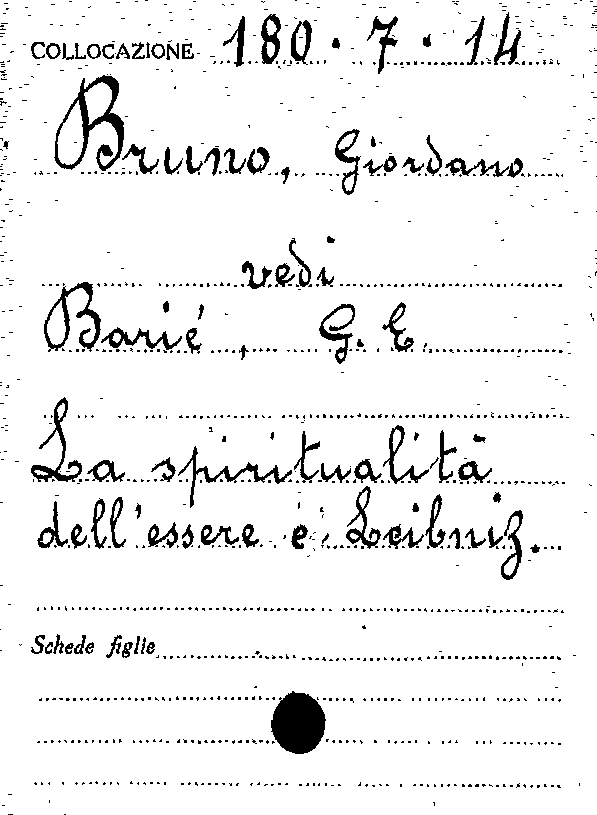 COLLOCAZIONE 180 · 7 · 14
Bruno, Giordano
vedi
Barié, G. E.
La spiritualità
dell'essere e Leibniz.
Schede figlie